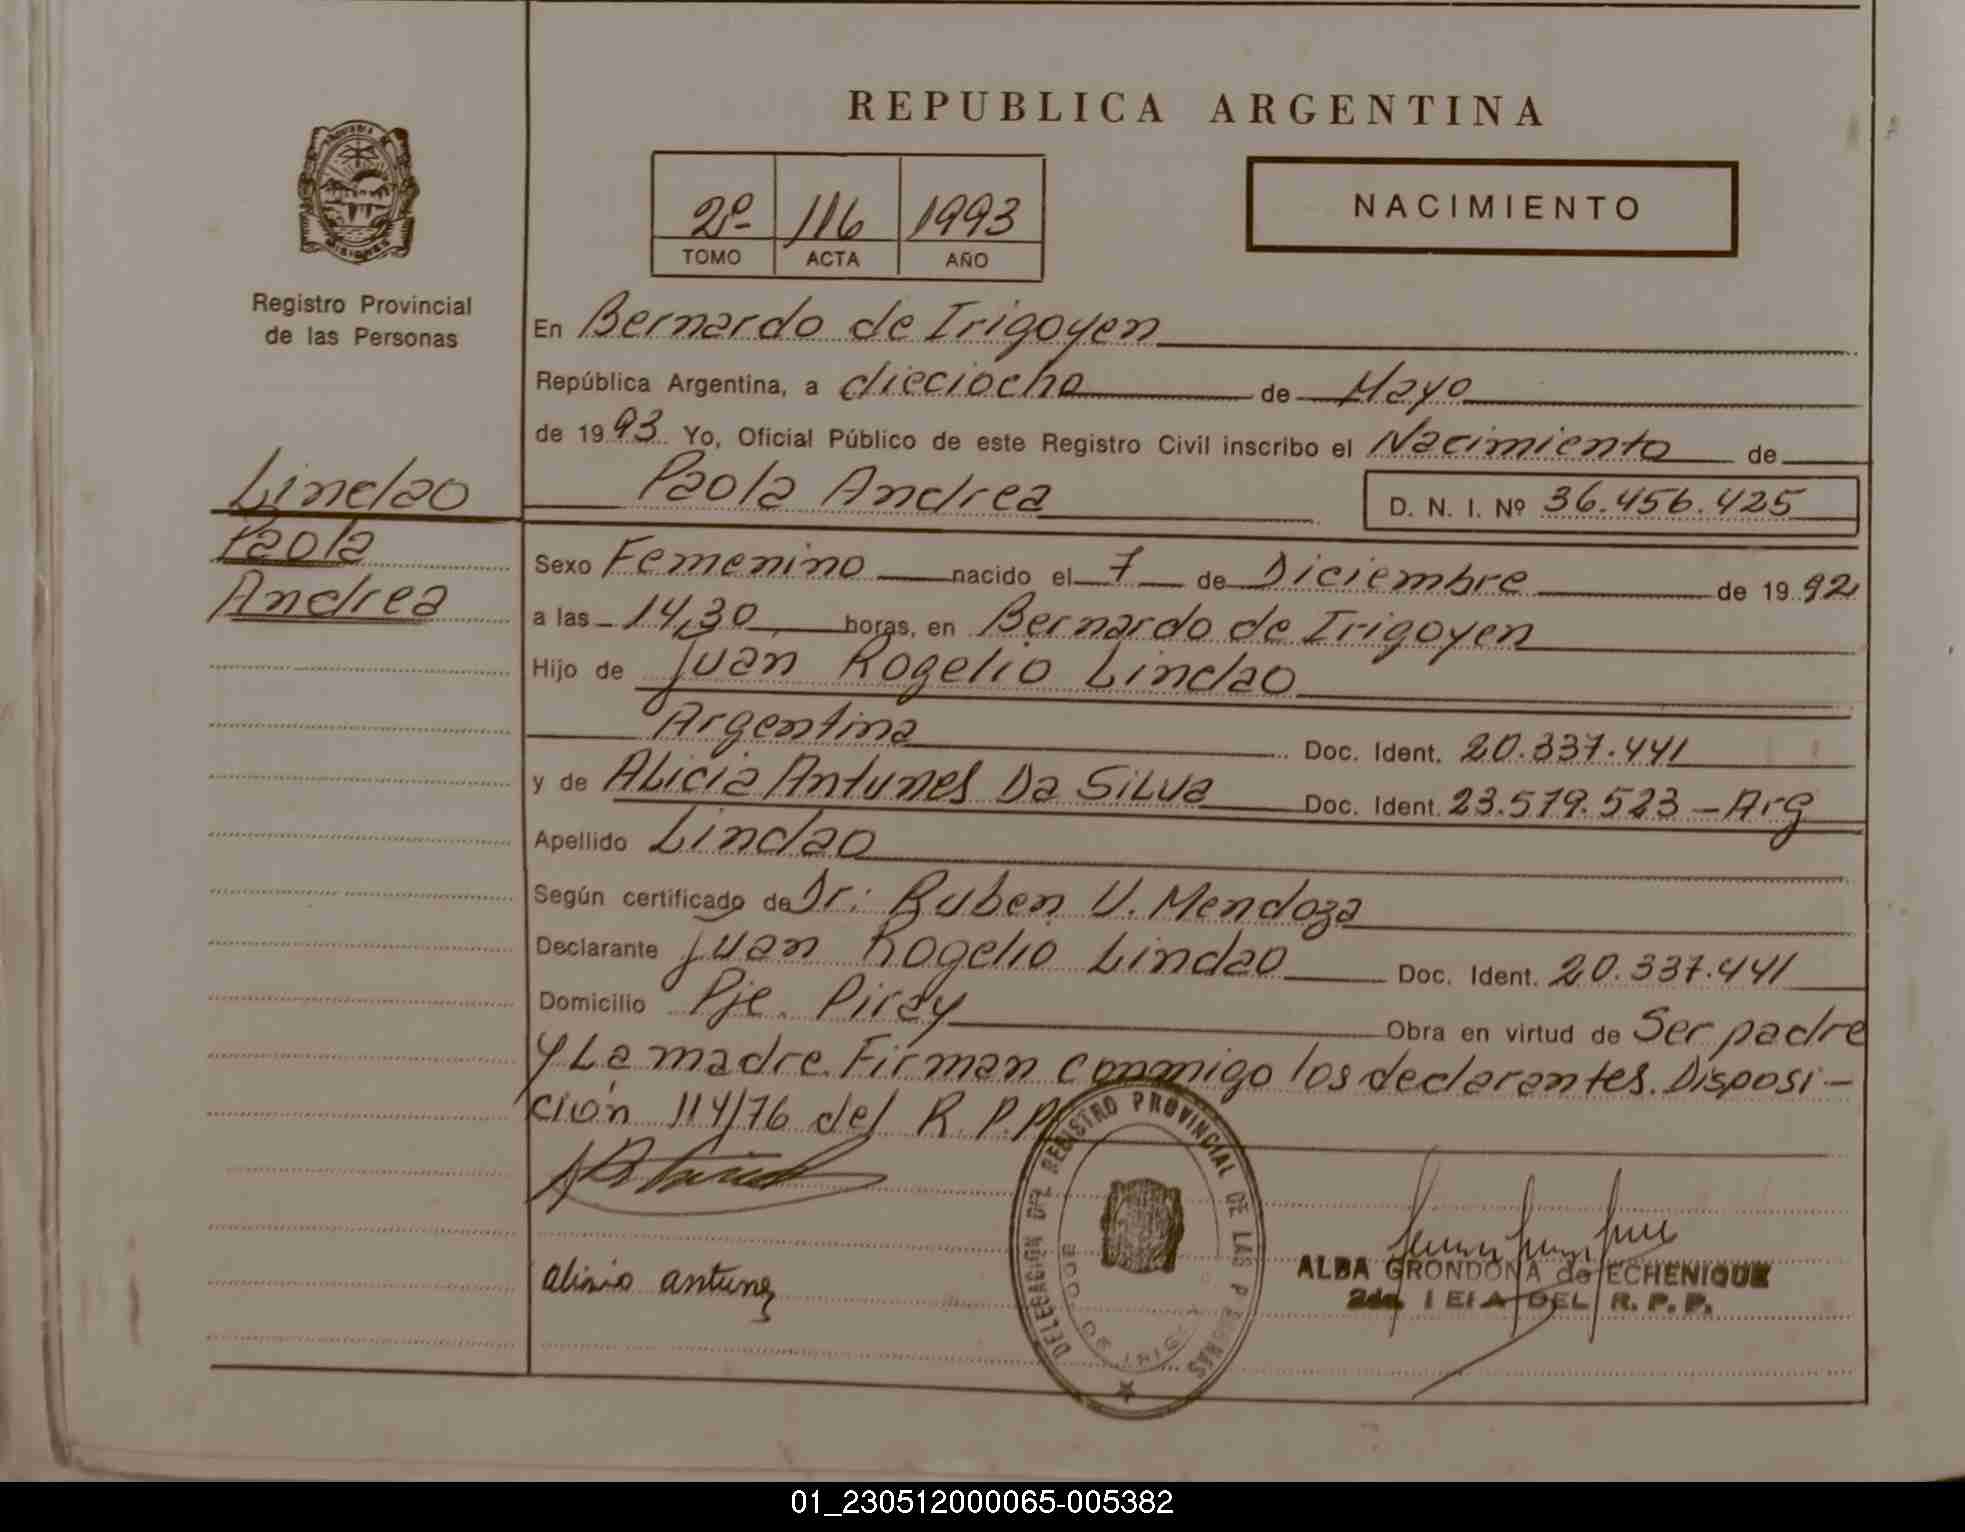 REPUBLICA ARGENTINA
MISIONES
Registro Provincial
de las Personas
2º 116 1993
TOMO ACTA AÑO
NACIMIENTO
En Bernardo de Irigoyen
República Argentina, a dieciocho de Mayo
de 1993 Yo, Oficial Público de este Registro Civil inscribo el Nacimiento de
Paola Andrea D. N. I. Nº 36.456.425
Lindao
Paola
Andrea
Sexo Femenino nacido el 7 de Diciembre de 1992
a las 14,30 horas, en Bernardo de Irigoyen
Hijo de Juan Rogelio Lindao
Argentina Doc. Ident. 20.337.441
y de Alicia Antunes Da Silva Doc. Ident. 23.579.523 - Arg
Apellido Lindao
Según certificado de Dr: Ruben V. Mendoza
Declarante Juan Rogelio Lindao Doc. Ident. 20.337.441
Domicilio Pje. Piray Obra en virtud de Ser padre
y La madre. Firman conmigo los declarantes. Disposi-
ción 114/76 del R.P.P.
DELEGACION DEL REGISTRO PROVINCIAL DE LAS PERSONAS
BDO. DE IRIG.
alisio antunez
ALBA GRONDONA de ECHENIQUE
2da. JEFA DEL R. P. P.
01_230512000065-005382